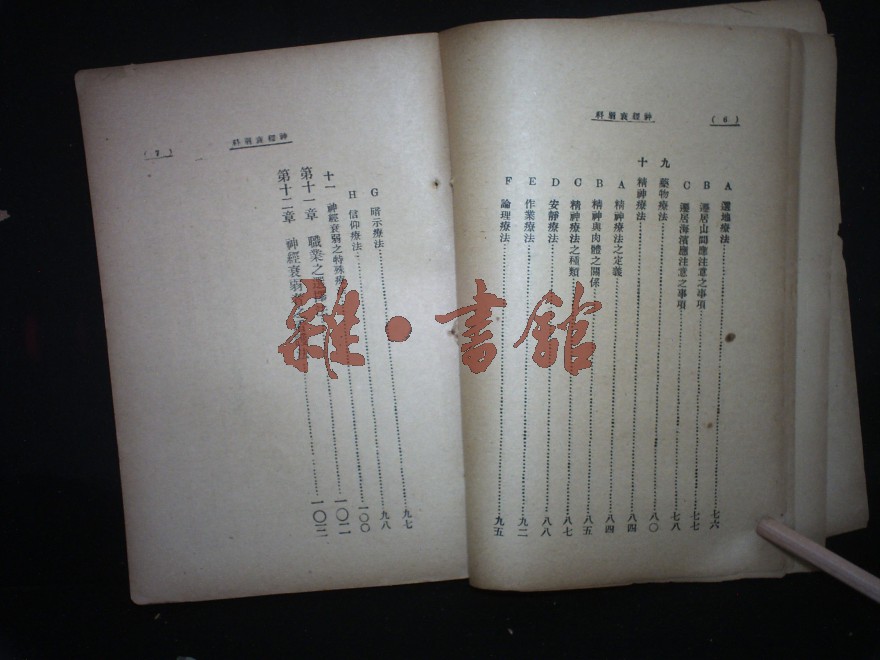 (6)
神經衰弱科
A 選地療法……七六
B 遷居山間應注意之事項……七七
C 遷居海濱應注意之事項……七八
九 藥物療法……八〇
十 精神療法……八四
A 精神療法之定義……八四
B 精神與肉體之關係……八五
C 精神療法之種類……八七
D 安靜療法……八八
E 作業療法……九二
F 論理療法……九五
神經衰弱科
(7)
G 暗示療法……九七
H 信仰療法……九八
十一 神經衰弱之特殊……一〇〇
第十一章 職業之……一〇二
第十二章 神經衰弱……一〇三
雜·書館